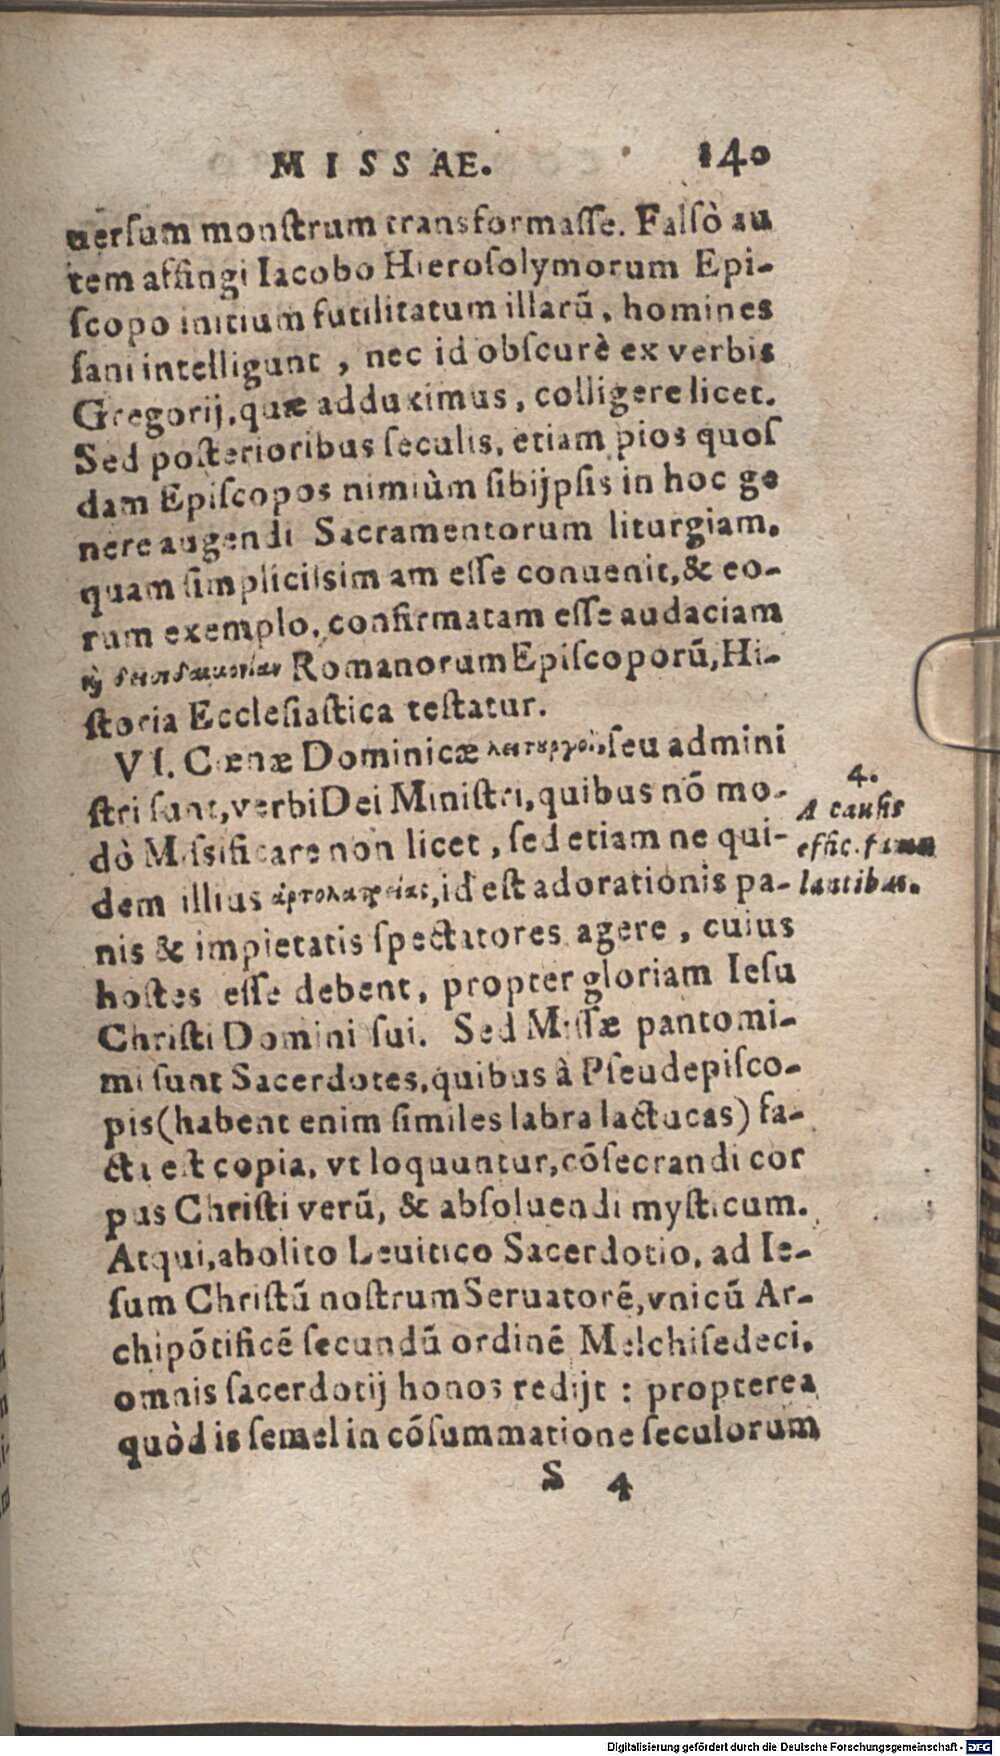 MISSAE. 140
uersum monstrum transformasse. Falsò au
tem affingi Iacobo Hierosolymorum Epi-
scopo initium futilitatum illarũ, homines
sani intelligunt, nec id obscurè ex verbis
Gregorij, quæ adduximus, colligere licet.
Sed posterioribus seculis, etiam pios quos
dam Episcopos nimiùm sibijpsis in hoc ge
nere augendi Sacramentorum liturgiam,
quam simplicissimam esse conuenit, & eo-
rum exemplo, confirmatam esse audaciam
Romanorum Episcoporũ, Hi-
storia Ecclesiastica testatur.
VI. Cœnæ Dominicæ λειτουργοὶ, seu admini
stri sunt, verbi Dei Ministri, quibus nõ mo-
dò Missificare non licet, sed etiam ne qui-
dem illius ἀρτολατρείας, id est adorationis pa-
nis & impietatis spectatores agere, cuius
hostes esse debent, propter gloriam Iesu
Christi Domini sui. Sed Missæ pantomi-
mi sunt Sacerdotes, quibus à Pseudepisco-
pis (habent enim similes labra lactucas) fa-
cta est copia, vt loquuntur, cõsecrandi cor
pus Christi verũ, & absoluendi mysticum.
Atqui, abolito Leuitico Sacerdotio, ad Ie-
sum Christũ nostrum Seruatorẽ, vnicũ Ar-
chipõtificẽ secundũ ordinẽ Melchisedeci,
omnis sacerdotij honos redijt : propterea
quòd is semel in cõsummatione seculorum
S 4
4.
A causis
effic. famu
lantibus.
Digitalisierung gefördert durch die Deutsche Forschungsgemeinschaft - DFG